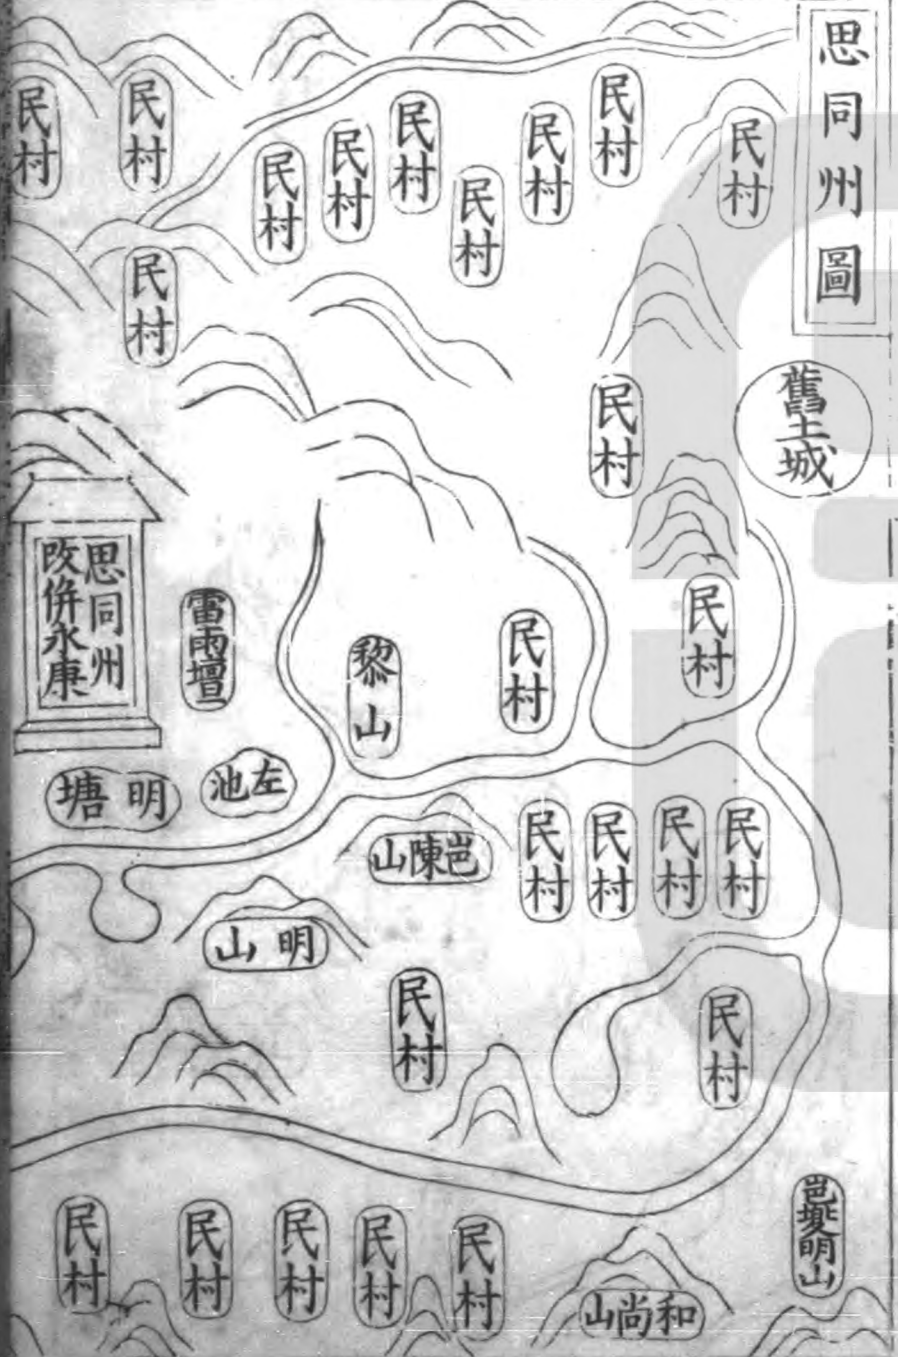 思同州圖
民村
民村
民村
民村
民村
民村
民村
民村
民村
民村
舊土城
民村
思同州
改併永康
雷雨壇
黎山
民村
民村
明塘
左池
岜陳山
民村
民村
民村
民村
明山
民村
民村
民村
民村
民村
民村
民村
和尚山